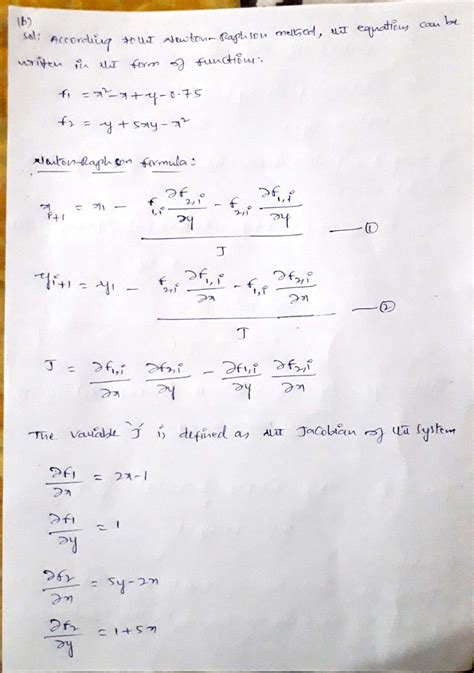 1b)
Sol: According to the Newton-Raphson method, the equations can be
written in the form of functions.
f1 = x²-x+y-0.75
f2 = y+5xy-x²
Newton-Raphson formula:
x_{i+1} = x_i - (f_{1,i} ∂f_{2,i}/∂y - f_{2,i} ∂f_{1,i}/∂y) / J —①
y_{i+1} = y_i - (f_{2,i} ∂f_{1,i}/∂x - f_{1,i} ∂f_{2,i}/∂x) / J —②
J = ∂f_{1,i}/∂x ∂f_{2,i}/∂y - ∂f_{1,i}/∂y ∂f_{2,i}/∂x
The variable 'J' is defined as the Jacobian of the system
∂f1/∂x = 2x-1
∂f1/∂y = 1
∂f2/∂x = 5y-2x
∂f2/∂y = 1+5x